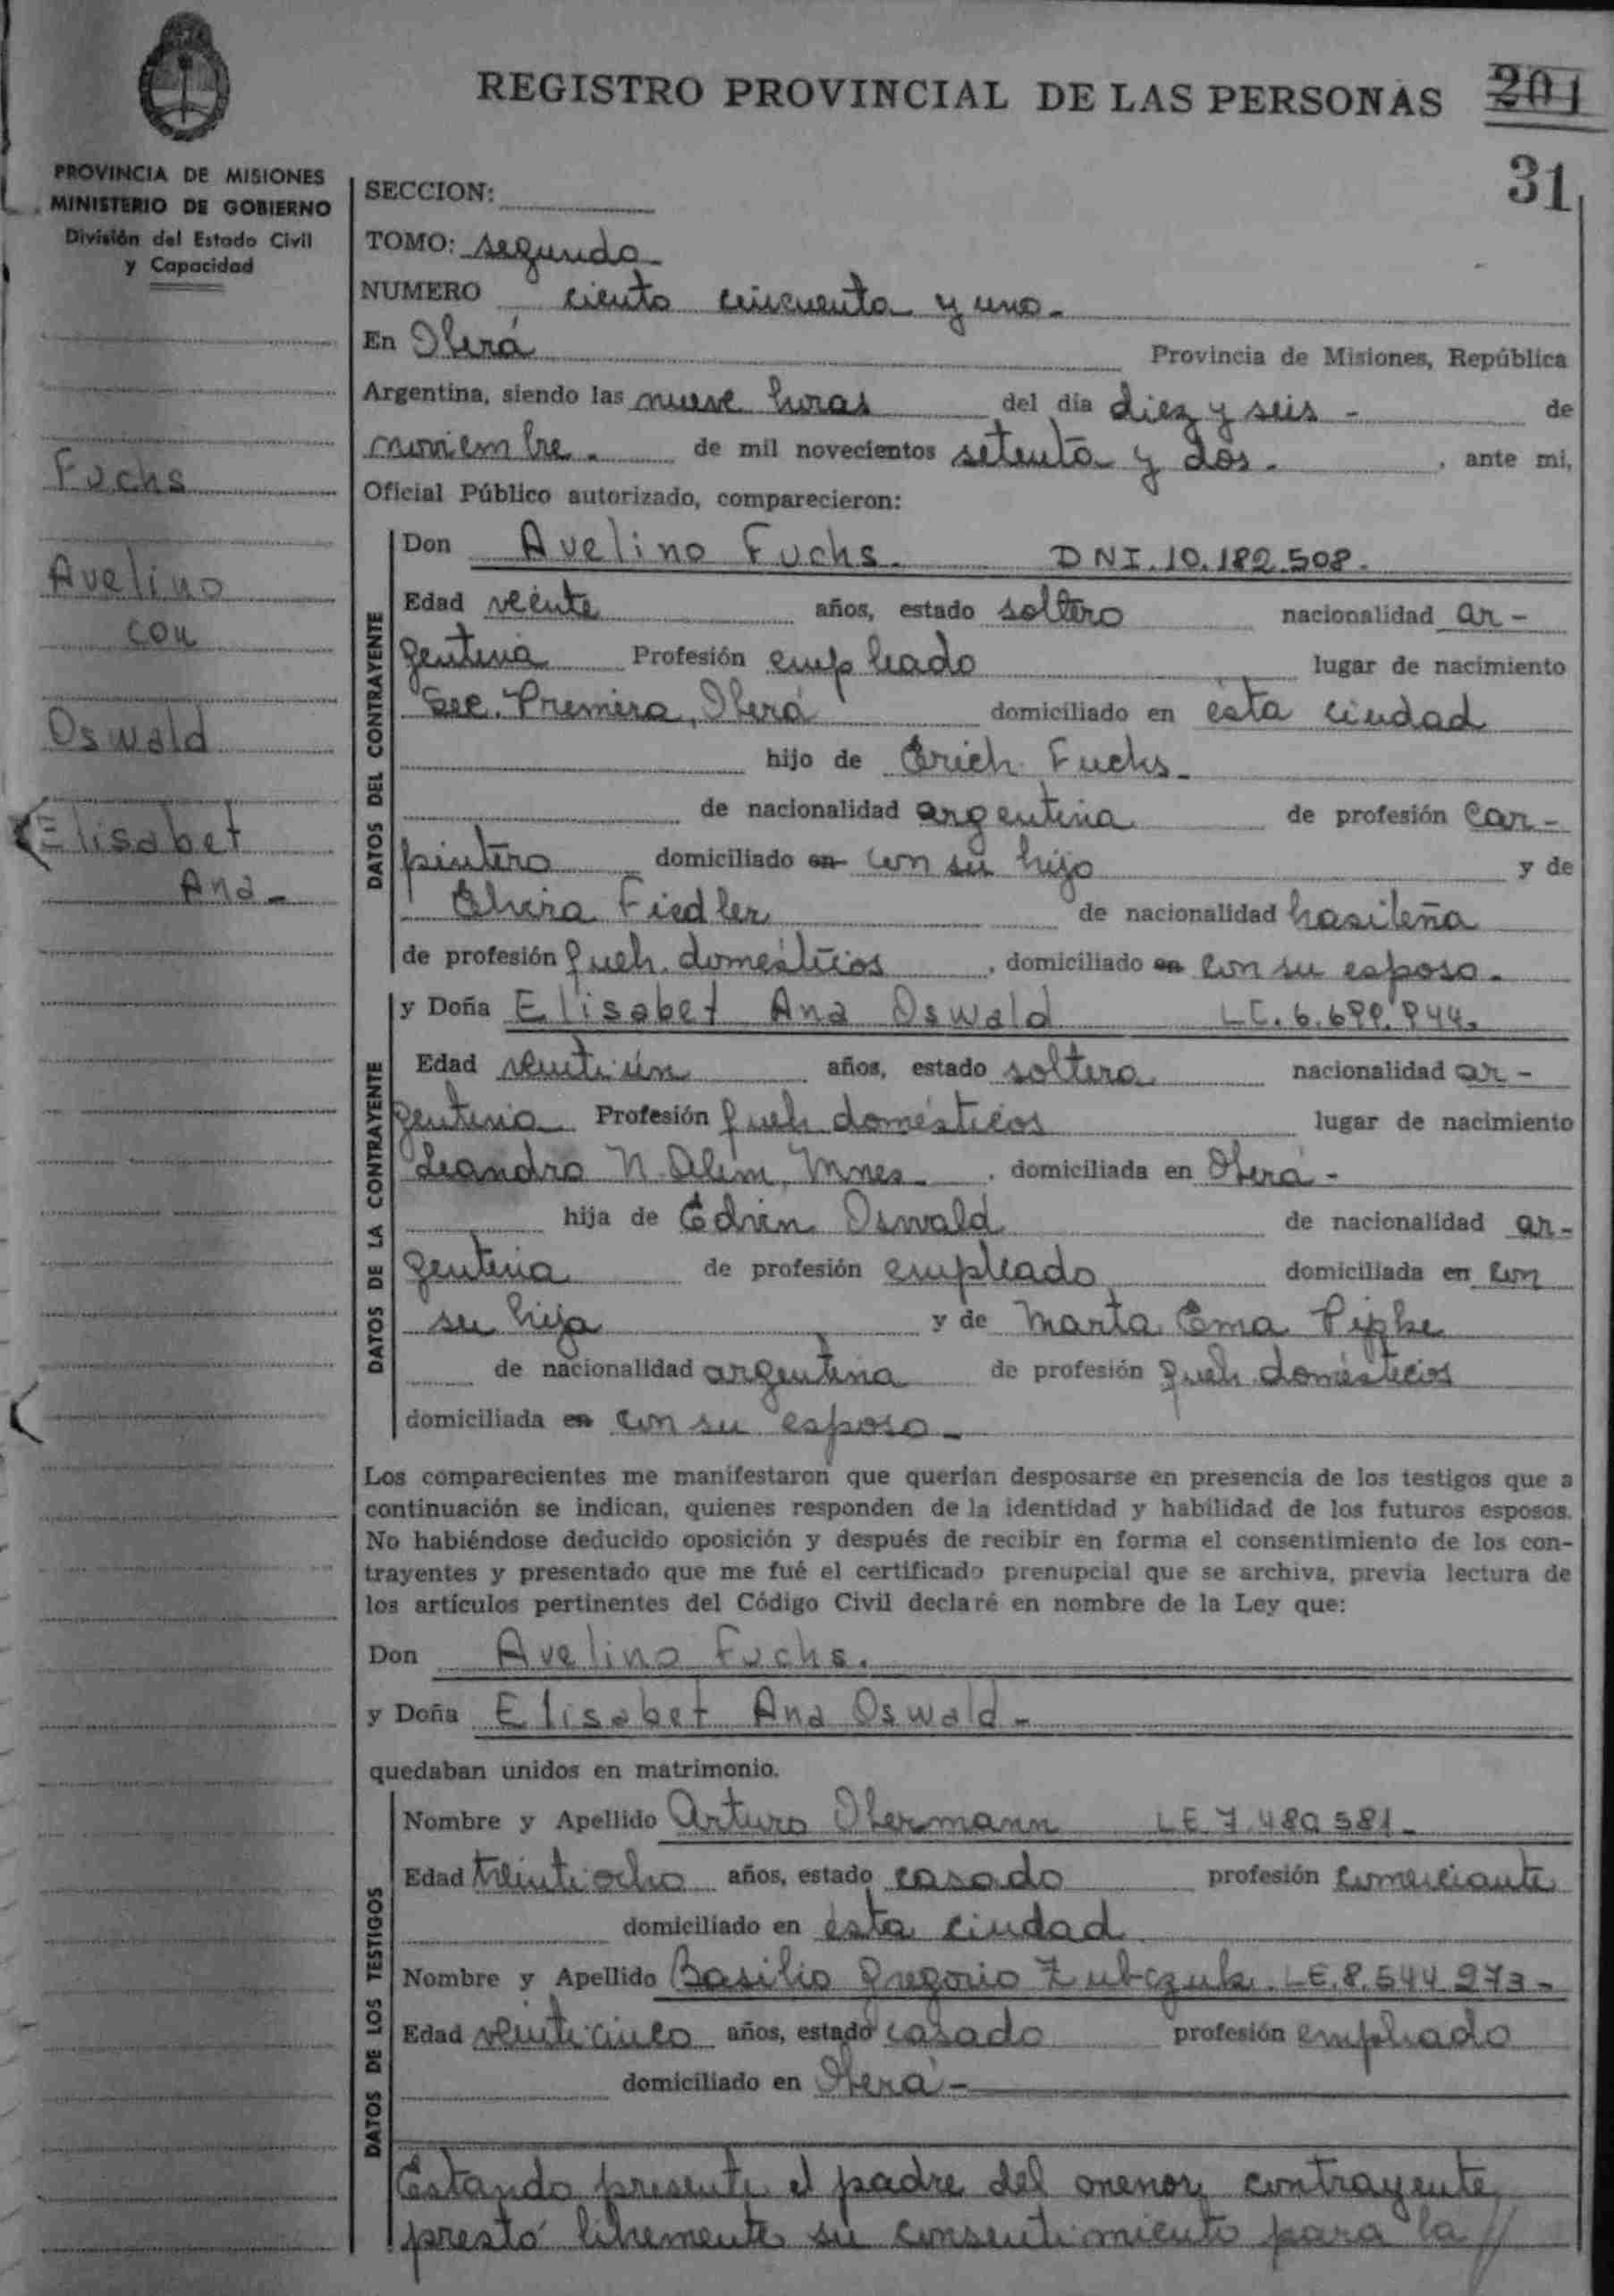 REGISTRO PROVINCIAL DE LAS PERSONAS 201
31
PROVINCIA DE MISIONES
MINISTERIO DE GOBIERNO
División del Estado Civil
y Capacidad
Fuchs
Avelino
con
Oswald
Elisabet
Ana-
SECCION:
TOMO: segundo
NUMERO ciento cincuenta y uno-
En Oberá Provincia de Misiones, República
Argentina, siendo las nueve horas del día diez y seis - de
noviembre. de mil novecientos setenta y dos. , ante mi,
Oficial Público autorizado, comparecieron:
DATOS DEL CONTRAYENTE
Don Avelino Fuchs. DNI.10.182.508.
Edad veinte años, estado soltero nacionalidad ar-
gentina Profesión empleado lugar de nacimiento
Sec. Primera, Oberá domiciliado en ésta ciudad
hijo de Erich Fuchs-
de nacionalidad argentina de profesión car-
pintero domiciliado en con su hijo y de
Elvira Fiedler de nacionalidad brasileña
de profesión queh. domésticos , domiciliado en con su esposo-
DATOS DE LA CONTRAYENTE
y Doña Elisabet Ana Oswald LC.
Edad veintiún años, estado soltera nacionalidad ar-
gentina Profesión queh domésticos lugar de nacimiento
Leandro N. Alem, Mnes. , domiciliada en Oberá-
hija de Edvin Oswald de nacionalidad ar-
gentina de profesión empleado domiciliada en con
su hija y de Marta Ema Pipke
de nacionalidad argentina de profesión queh. domésticos
domiciliada en con su esposo-
Los comparecientes me manifestaron que querían desposarse en presencia de los testigos que a
continuación se indican, quienes responden de la identidad y habilidad de los futuros esposos.
No habiéndose deducido oposición y después de recibir en forma el consentimiento de los con-
trayentes y presentado que me fué el certificado prenupcial que se archiva, previa lectura de
los artículos pertinentes del Código Civil declaré en nombre de la Ley que:
Don Avelino Fuchs.
y Doña Elisabet Ana Oswald-
quedaban unidos en matrimonio.
DATOS DE LOS TESTIGOS
Nombre y Apellido Arturo Obermann LE.7.480.581-
Edad treintiocho años, estado casado profesión comerciante
domiciliado en ésta ciudad
Nombre y Apellido Basilio Gregorio Zubczuk. LE.8.544.273-
Edad veinticinco años, estado casado profesión empleado
domiciliado en Oberá-
Estando presente el padre del menor contrayente
prestó libremente su consentimiento para la //